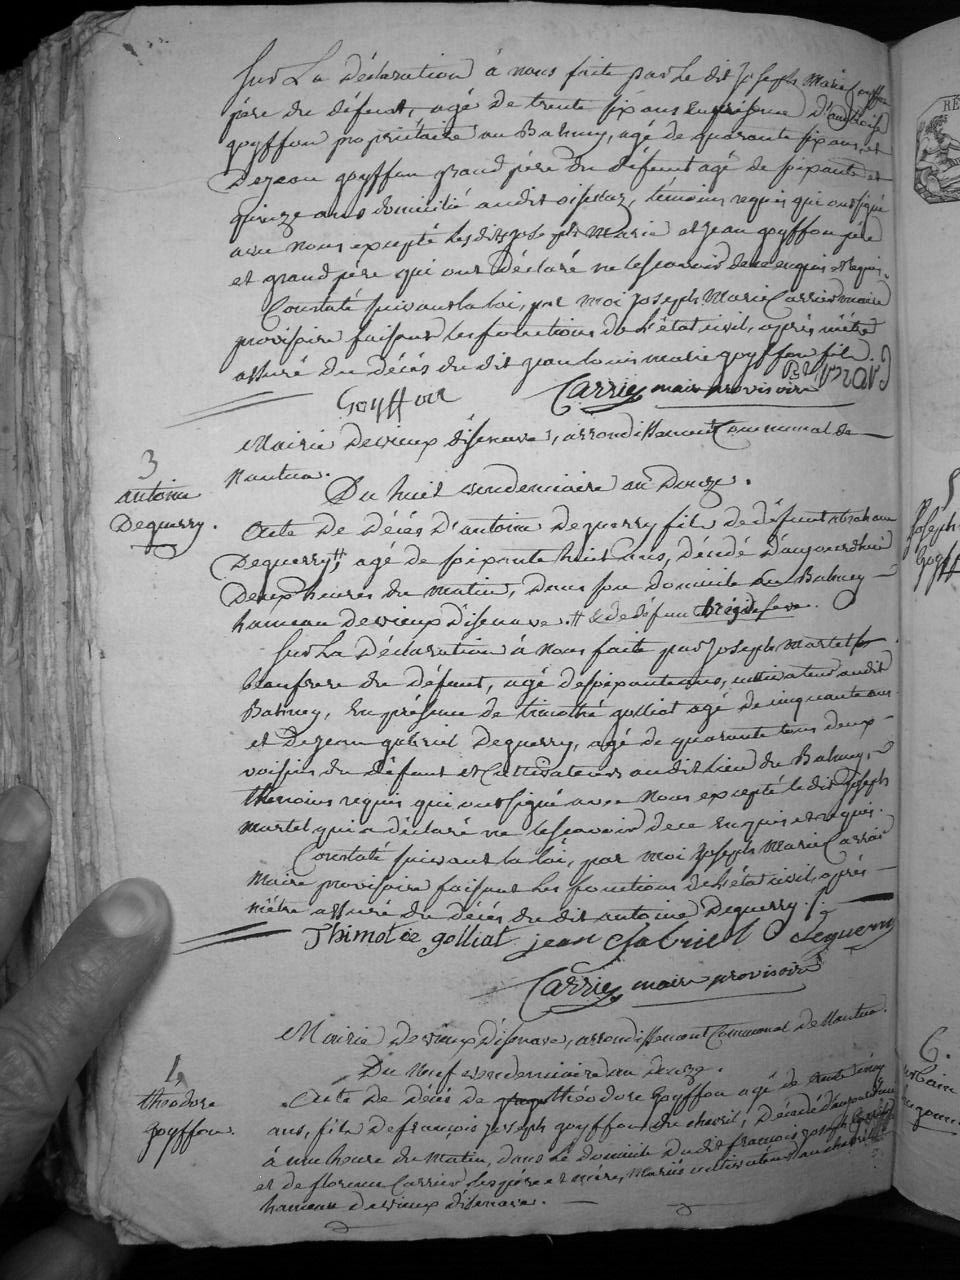 Sur La Déclaration à nous faite par Le dit Joseph Marie Goyffon
père du défunt, agé de trente six ans En présence d'
goyffon propriétaire au Balmey, agé de quarante six ans, et
De jean goyffon grand père du défunt agé de soixante et
quinze ans domicilié audit, témoins requis qui ont signé
avec nous excepté lesdits joseph Marie et jean goyffon père
et grand père qui ont Déclaré ne le scavoir de ce enquis et requis.
Constaté suivant la loi, par moi joseph Marie Carrier maire
provisoire faisant les fonctions de l'état civil, après m'être
assuré du décés du dit jean louis marie goyffon fils.
Goyffon Carrier maire provisoire
Mairie de vieux disenave, arrondissement Communal de
Nantua.
3
antoine
Deguerry.
Du huit vendemiaire an Douze.
Acte De Décés D'antoine Deguerry fils de défunt abraham
Deguerry #, agé de soixante huit ans, décédé D'aujourd'hui
Deux heures du matin, dans son domicile au Balmey
hameau de vieux disenave. # & de défunte brigide
Sur La Déclaration à Nous faite par joseph Martel
beaufrere du défunt, agé de soixante ans, cultivateur audit
Balmey, En présence de timothé golliat agé de cinquante ans
et De jean gabriel Deguerry, agé de quarante tous deux
voisins du défunt et Cultivateurs audit Lieu du Balmey,
thémoins requis qui ont signé avec Nous excepté le dit joseph
martel qui a déclaré ne le scavoir de ce Enquis et requis.
Constaté suivant la loi, par moi joseph Marie Carrier
Maire provisoire faisant les fonctions de l'état civil, après
m'être assuré du décés du dit antoine Deguerry.
Thimotée golliat jean Gabriel Deguerry
Carrier maire provisoire
Mairie De vieux Disenave, arrondissement Communal de Nantua.
Du Neuf vendemiaire an Douze.
theodore
goyffon.
Acte De Décés de théodore Goyffon agé de trente cinq
ans, fils de françois joseph goyffon du chevril, Décédé d'aujourd'hui
à une heure du Matin, dans Le domicile dudit françois joseph
et de florence Carrier ses père et mère, Mariés cultivateurs au chevril
hameau de vieux disenave.
5
Joseph
goyff
6.